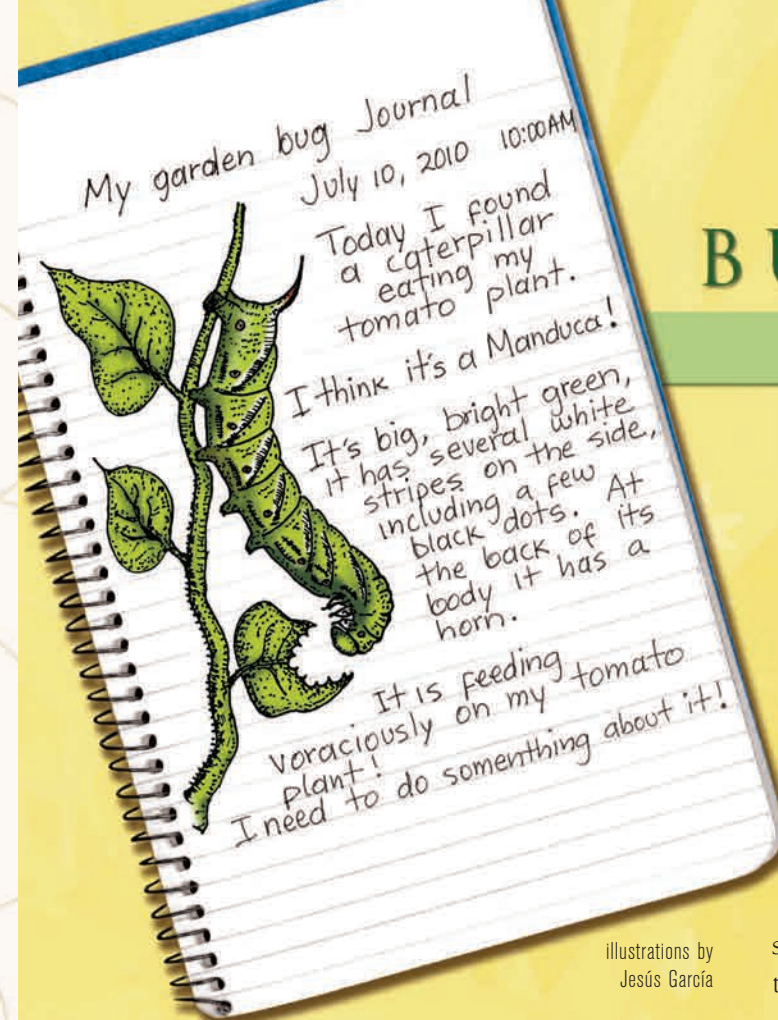 My garden bug Journal
July 10, 2010 10:00AM
Today I found
a caterpillar
eating my
tomato plant.
I think it's a Manduca!
It's big, bright green,
it has several white
stripes on the side,
including a few
black dots. At
the back of its
body it has a
horn.
It is feeding
voraciously on my tomato
plant!
I need to do somenthing about it!
B U
illustrations by
Jesús García
s
t